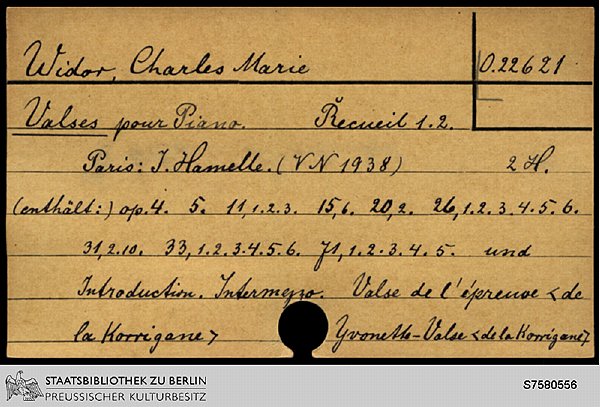 Widor, Charles Marie O.22621
Valses pour Piano. Recueil 1.2.
Paris: J. Hamelle. (VN 1938) 2 H.
(enthält:) op.4. 5. 11,1.2.3. 15,6. 20,2. 26,1.2.3.4.5.6.
31,2.10. 33,1.2.3.4.5.6. 71,1.2.3.4.5. und
Introduction. Intermezzo. Valse de l'épreuve <de
la Korrigane> Yvonette-Valse <de la Korrigane>
STAATSBIBLIOTHEK ZU BERLIN
PREUSSISCHER KULTURBESITZ
S7580556